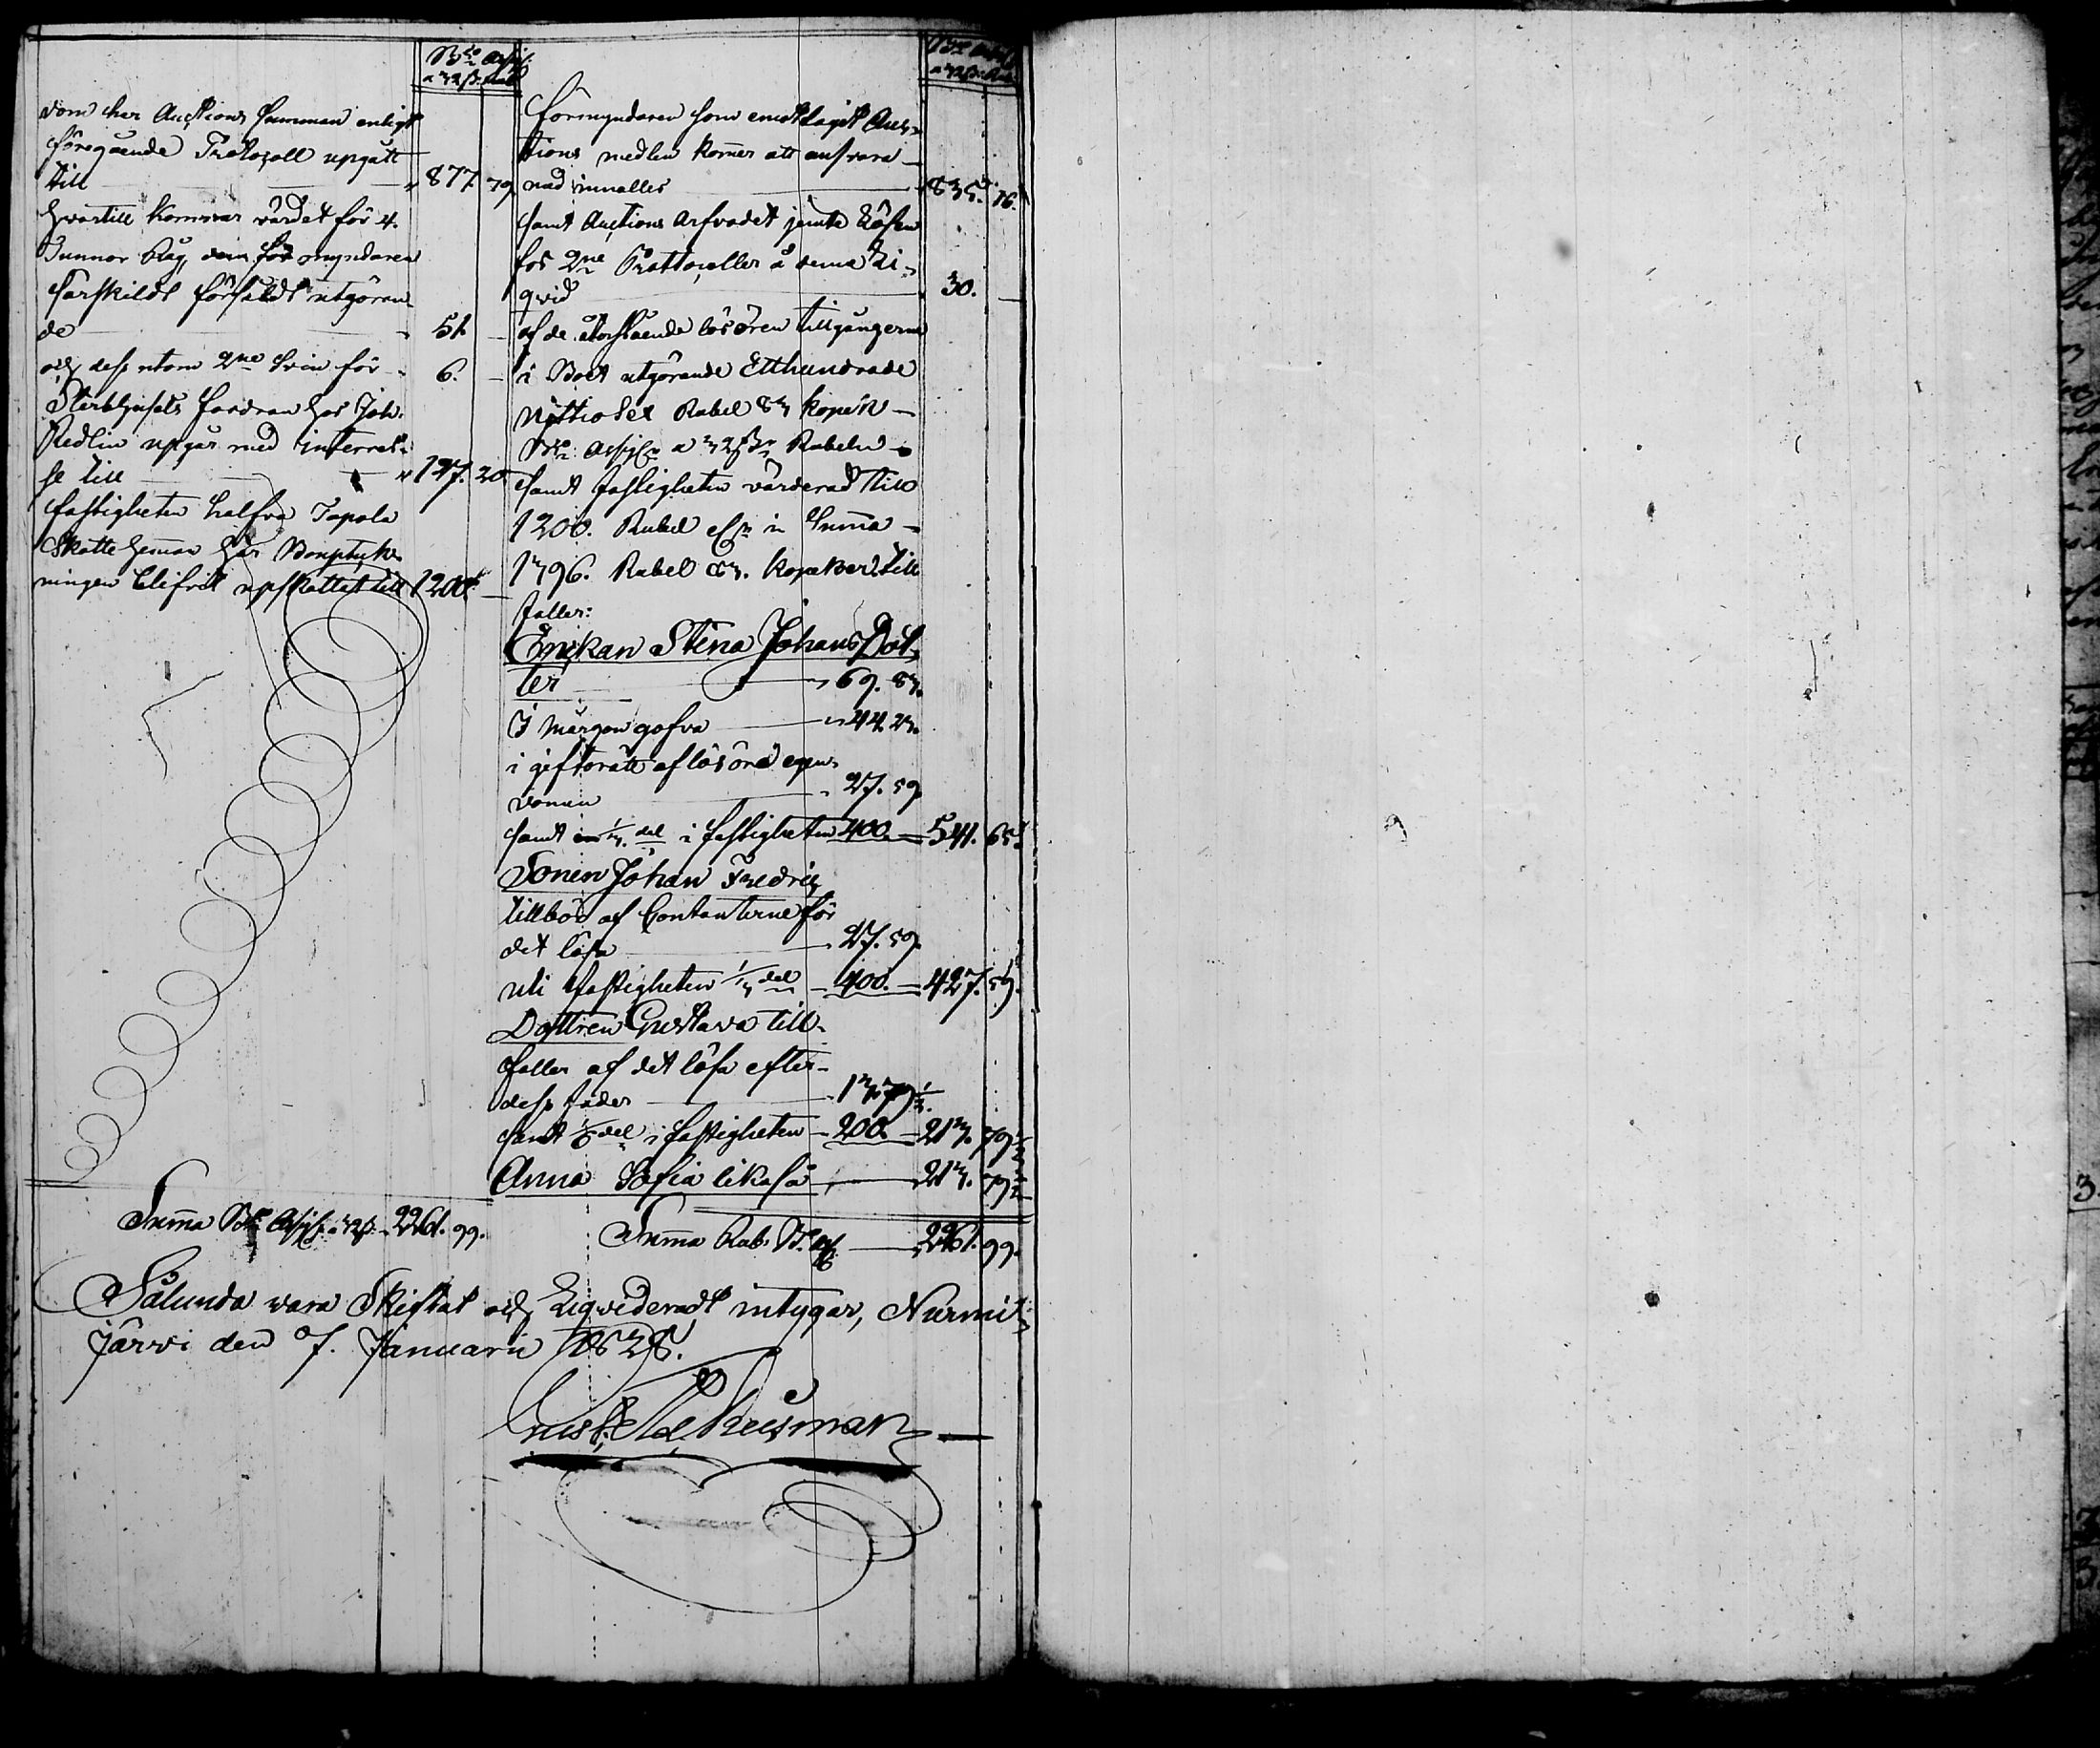 Bco Assig:
a 32 ß: Rub
som har Auctions Summan enligt
föregående Protocoll upgått
till 877. 79.
Hvartill kommer värdet för 4.
Tunnor Råg, dem förmyndaren
särskildt försåldt utgöran-
de 51. —
och dess utom 2ne Svin för 6. —
Sterbhusets fordran hos Joh:
Redlin upgår med interres-
se till 127. 20
fastigheten halfva Tapola
Skatte Heman har Bouptek-
ningen blifvit upskattat till 1200. —
Summa Bco Assig. a 32 ß. 2261. 99.
Bco Assig
a 32 ß: Rub
Förmyndaren som emottagit Auc-
tions medlen kommer att ansvara
nad innalles 835. 16.
samt Auctions Arfvodet jemte Lösen
för 2ne Prottocoller å denna Li-
qvid 30. —
af de återstående lösören tillgångerne
i Boet utgörande Etthundrade
Nittiosex Rubel 83 kopek
Bco Assign a 32 ß Rubeln
samt fastigheten värderad till
1200. Rubel eller in Summa
1396. Rubel 83. kopeker till
faller:
Enkan Stina Johans Dot-
ter 69. 83.
I Morgongofva 44. 23.
i giftorätt af lösöre egen-
domen 27. 59.
samt en 1/3. del i fastigheten 400. 541. 65.
Sonen Johan Fredric
tillkommer af Contanterne för
det lösa 27. 59.
uti fastigheten 1/3 del 400. 427. 59.
Dottren Gustava till-
faller af det lösa efter
dess fader 13. 79 1/2.
samt 1/6 del i fastigheten 200. 213. 79 1/2
Anna Sofia likaså 213. 79 1/2
Summa Rub. B. Ass 2261. 99.
Sålunda wara Skiftat och Liqvideradt intygar, Nurmi-
järvi den 7. Januarii 1828.
Gust: